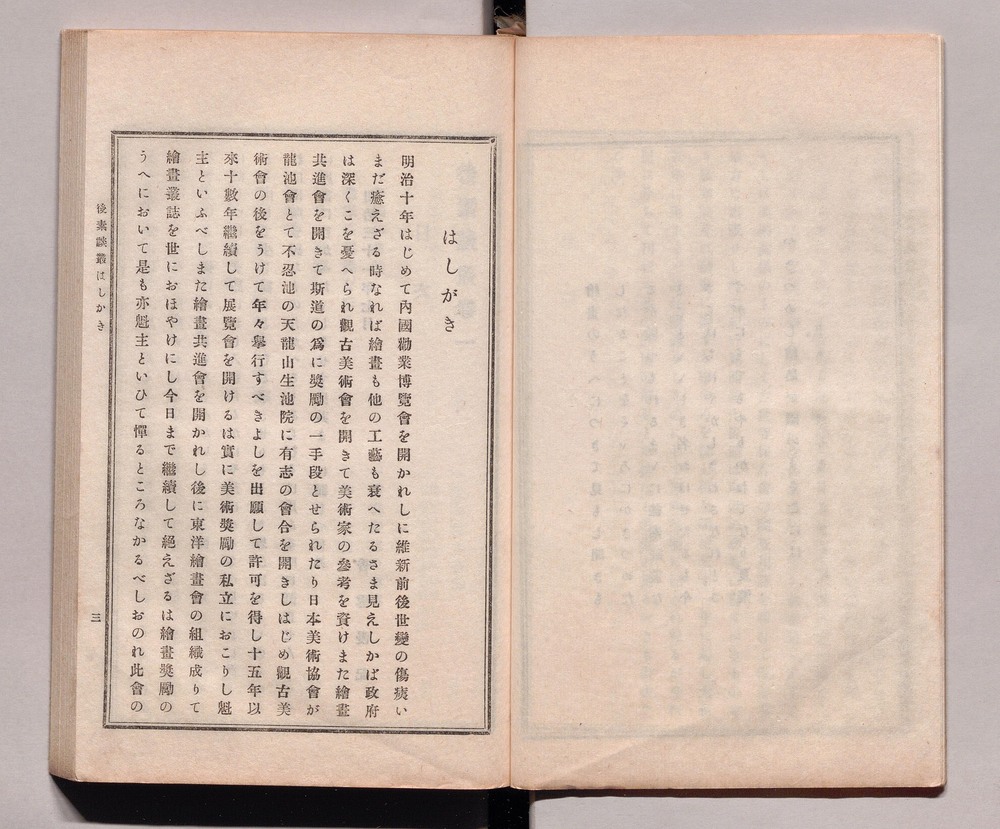 はしがき
明治十年はじめて內國勸業博覽會を開かれしに維新前後世變の傷痍い
まだ癒えざる時なれば繪畫も他の工藝も衰へたるさま見えしかば政府
は深くこを憂へられ觀古美術會を開きて美術家の參考を資けまた繪畫
共進會を開きて斯道の爲に奬勵の一手段とせられたり日本美術協會が
龍池會とて不忍池の天龍山生池院に有志の會合を開きしはじめ觀古美
術會の後をうけて年々擧行すべきよしを出願して許可を得し十五年以
來十數年繼續して展覽會を開けるは實に美術奬勵の私立におこりし魁
主といふべしまた繪畫共進會を開かれし後に東洋繪畫會の組織成りて
繪畫叢誌を世におほやけにし今日まで繼續して絕えざるは繪畫奬勵の
うへにおいて是も亦魁主といひて憚るところなかるべしおのれ此會の
後素談叢はしかき
三